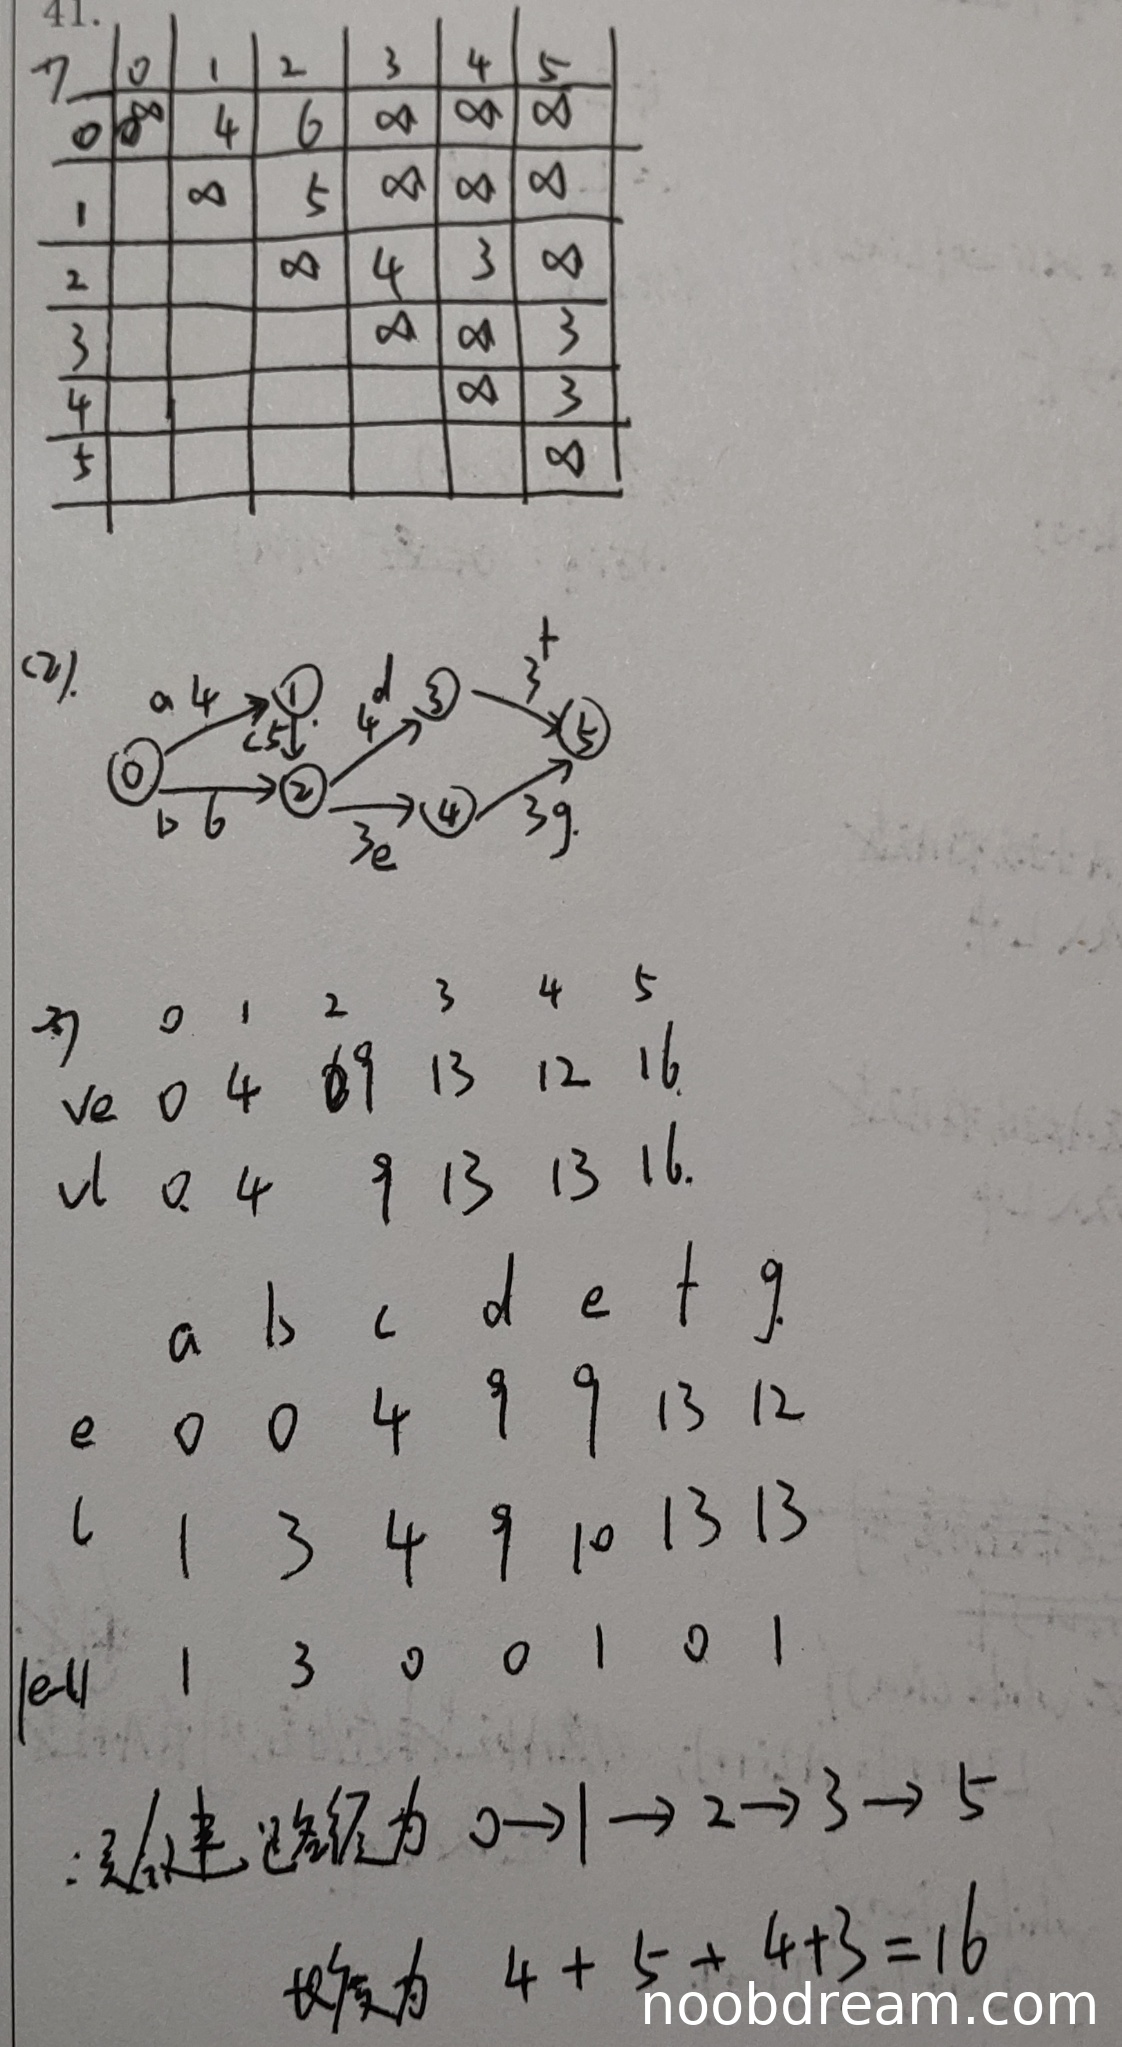 41.
1) 0 1 2 3 4 5
0 ∞ 4 6 ∞ ∞ ∞
1 ∞ 5 ∞ ∞ ∞
2 ∞ 4 3 ∞
3 ∞ ∞ 3
4 ∞ 3
5 ∞
(2).
a 4 1 d 4 3 f 3
0 c5 5
b 6 2 3e 4 3g.
3) 0 1 2 3 4 5
ve 0 4 9 13 12 16.
vl 0. 4 9 13 13 16.
a b c d e f g.
e 0 0 4 9 9 13 12
l 1 3 4 9 10 13 13
|e-l| 1 3 0 0 1 0 1
∴关键路径为 0→1→2→3→5
长度为 4+5+4+3=16
noobdream.com